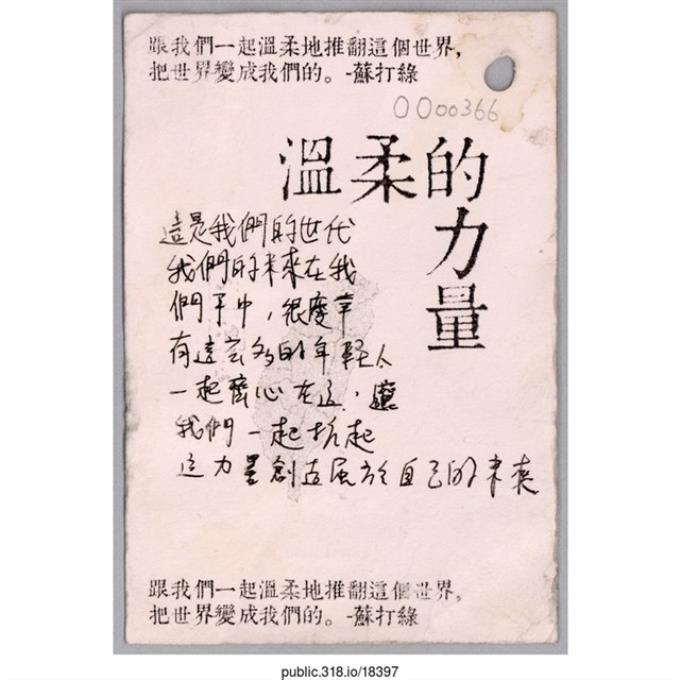 跟我們一起溫柔地推翻這個世界,
把世界變成我們的。-蘇打綠
0000366
溫柔的
力
量
這是我們的世代
我們的未來在我
們手中，很慶幸
有這麼多的年輕人
一起齊心在這，
我們一起扛起
這力量創造屬於自己的未來
跟我們一起溫柔地推翻這個世界,
把世界變成我們的。-蘇打綠
public.318.io/18397